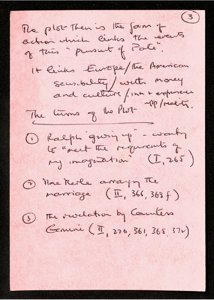 3
The plot then is the form of
action which links the events
of this "pursuit of Pole".
It links Europe/the American
sensibility/with money
and culture/
The terms of the Plot
① Ralph "giving up" -
to "meet the requirements of
my imagination" (I, 265)
② Mme Merle arranging the
marriage (II, 366, 363 f)
③ The revelation by Countess
Gemini (II, 270, 361, 365